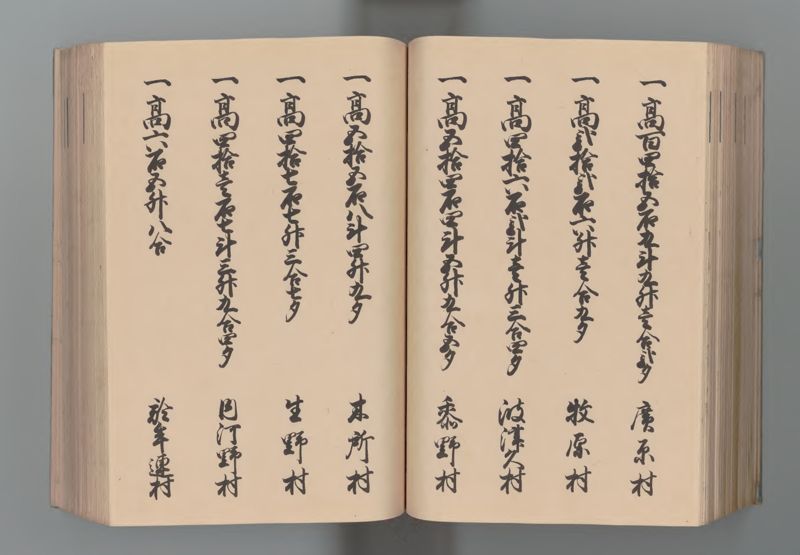 一高百四拾五石九斗九升壱合弐夕 廣原村
一高弐拾弐石六升壱合九夕 牧原村
一高四拾六石弐斗壱升三合四夕 波津久村
一高五拾四石四斗五升九合五夕 黍野村
一高五拾五石八斗四升九夕 木所村
一高四拾七石七升三合七夕 生野村
一高四拾壱石七斗三升九合四夕 円河野村
一高六石五升八合 年連村